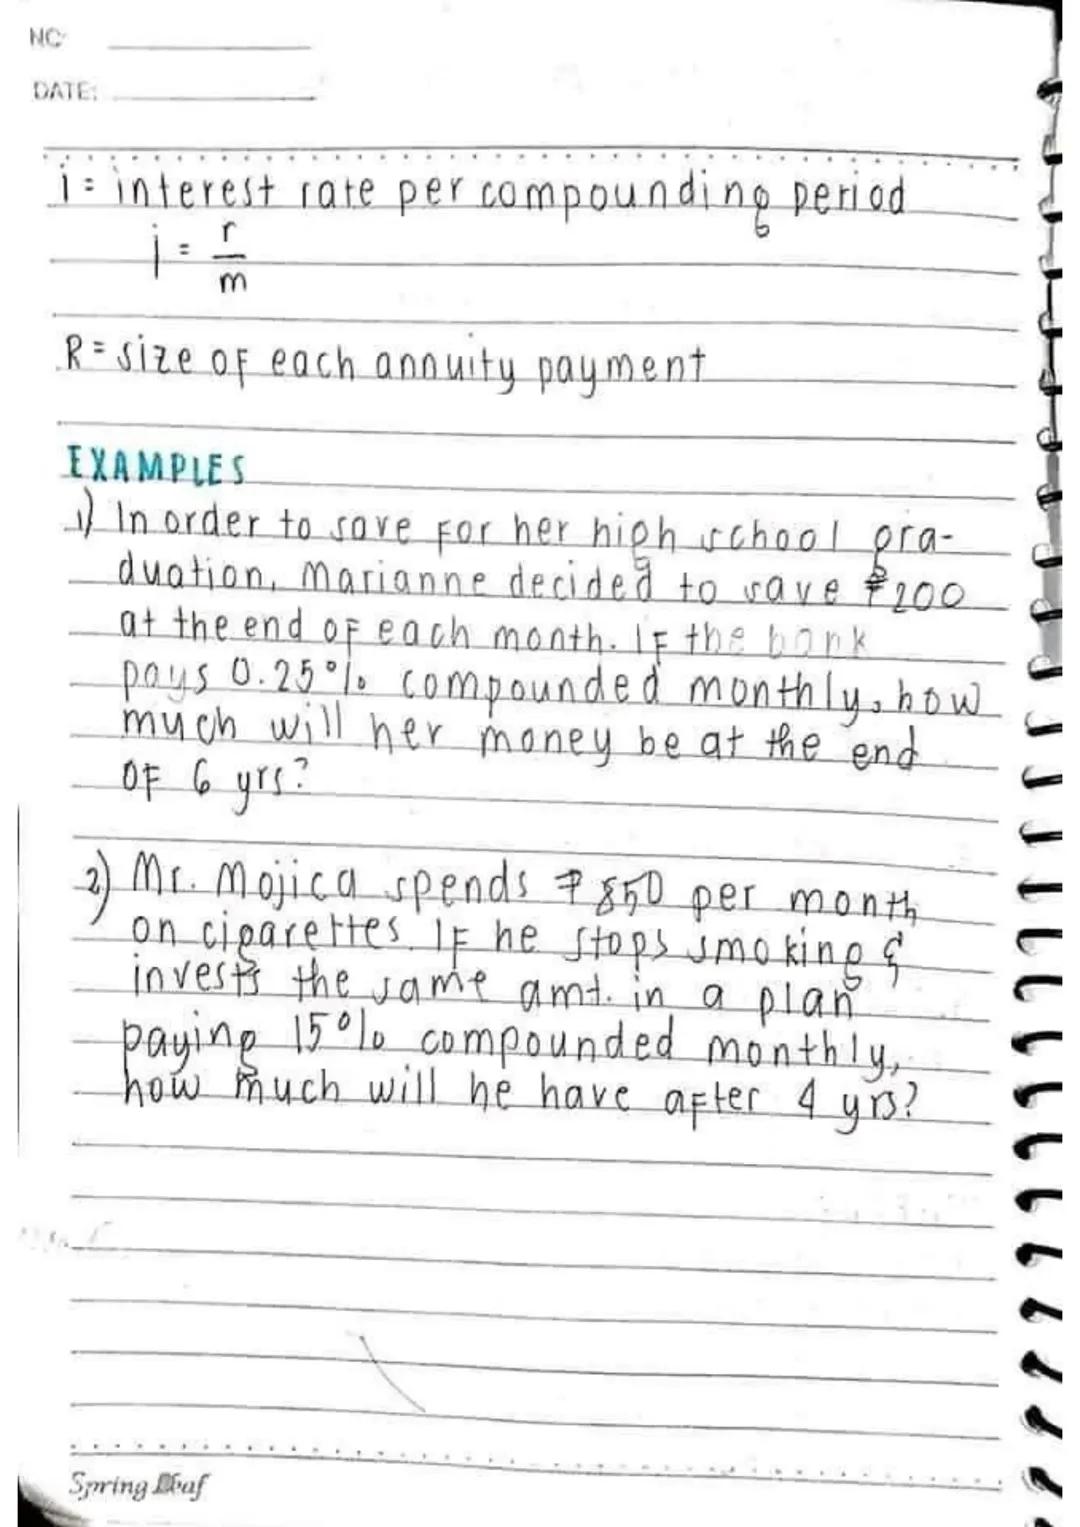 NO:
DATE:
i = interest rate per compounding period
i = r
m
R = size of each annuity payment
EXAMPLES
1) In order to save for her high school gra-
duation, Marianne decided to save ₱200
at the end of each month. If the bank
pays 0.25% compounded monthly, how
much will her money be at the end
of 6 yrs?
2) Mr. Mojica spends ₱850 per month
on cigarettes. If he stops smoking &
invests the same amt. in a plan
paying 15% compounded monthly,
how much will he have after 4 yrs?
Spring Leaf